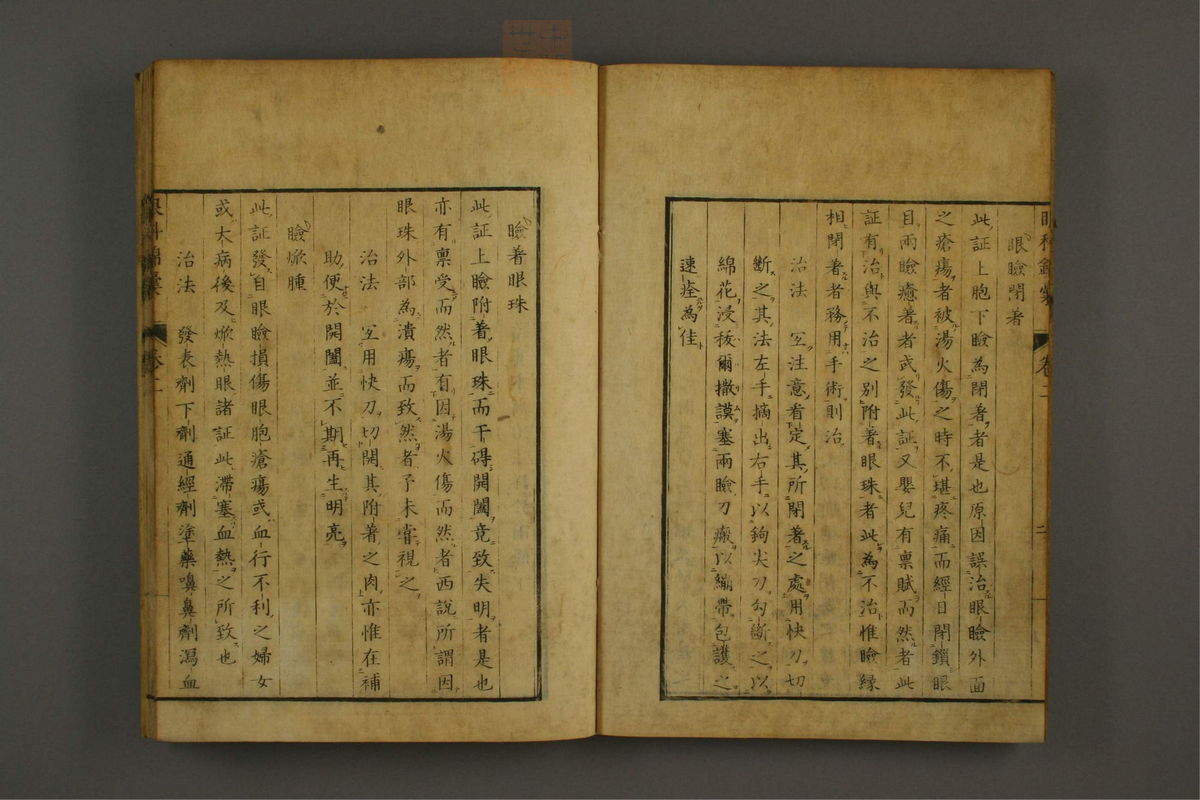 眼科錦嚢 卷二 二
眼瞼閉著
此証上胞下瞼為閉著者是也原因誤治眼瞼外面
之瘡瘍者被湯火傷之時不堪疼痛而經日閉鎖眼
目兩瞼癒著者或發此証又嬰兒有稟賦而然者此
証有治與不治之別附著眼珠者此為不治惟瞼縁
相閉著者務用手術則治
治法 宜注意看定其所閉著之處用快刀切
斷之其法左手摘出右手以鉤尖刀勾斷之以
綿花浸抜爾撒謨塞兩瞼刀瘢以繃帶包護之
速痊為佳
瞼著眼珠
此証上瞼附著眼珠而干碍開闔竟致失明者是也
亦有稟受而然者有因湯火傷而然者西說所謂因
眼珠外部為潰瘍而致然者予未嘗視之
治法 宜用快刀切開其附著之肉亦惟在補
助便於開闔並不期再生明亮
瞼焮腫
此証發自眼瞼損傷眼胞瘡瘍或血行不利之婦女
或大病後及焮熱眼諸証此滯塞血熱之所致也
治法 發表劑下劑通經劑塗藥嗅鼻劑瀉血
眼科錦嚢 卷二